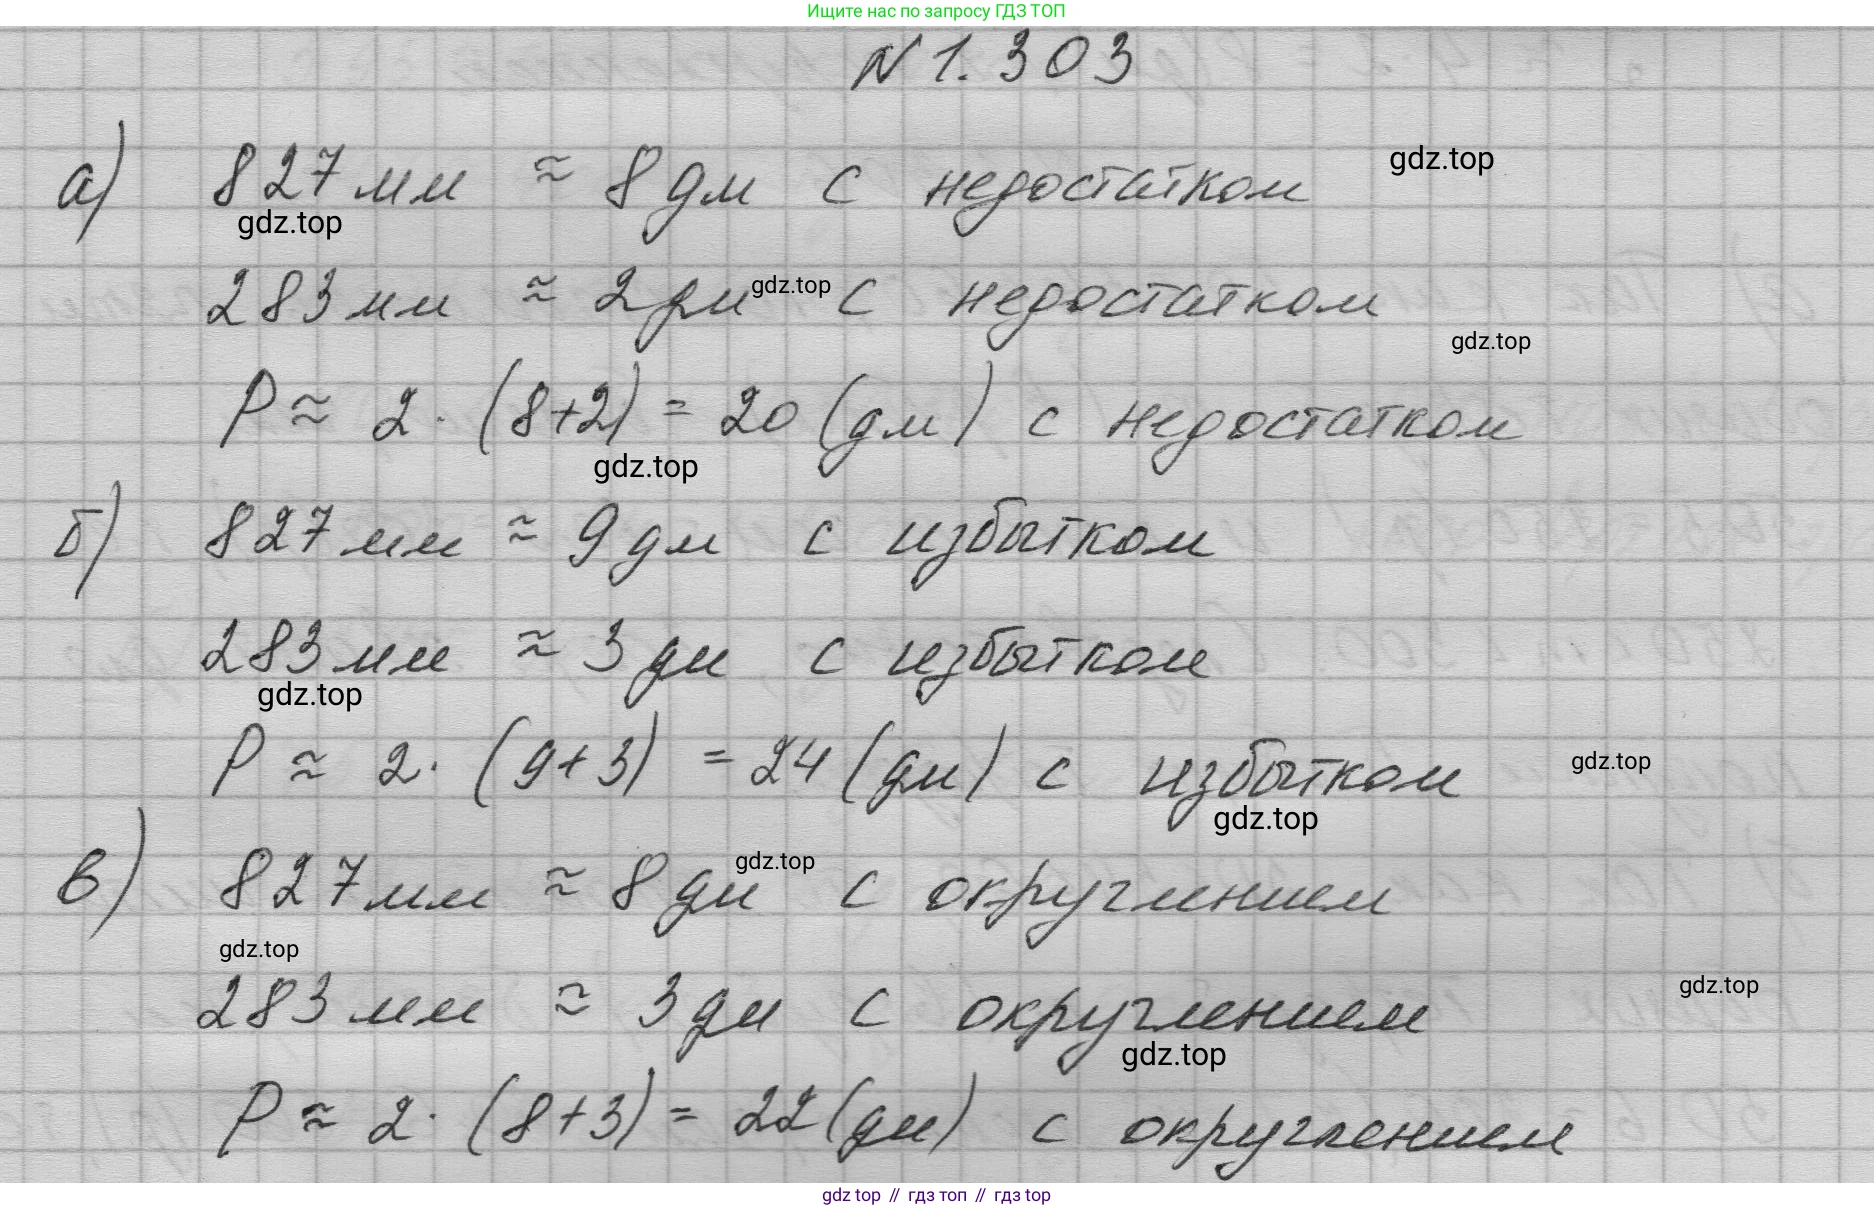 Ищите нас по запросу ГДЗ ТОП
N 1.303
а) 827 мм ≈ 8 дм с недостатком
gdz.top
gdz.top
283 мм ≈ 2 дм с недостатком
gdz.top
gdz.top
P ≈ 2 · (8+2) = 20 (дм) с недостатком
gdz.top
б) 827 мм ≈ 9 дм с избытком
283 мм ≈ 3 дм с избытком
gdz.top
P ≈ 2 · (9+3) = 24 (дм) с избытком
gdz.top
gdz.top
в) 827 мм ≈ 8 дм с округлением
gdz.top
gdz.top
283 мм ≈ 3 дм с округлением
gdz.top
gdz.top
P ≈ 2 · (8+3) = 22 (дм) с округлением
gdz top // гдз топ // гдз top